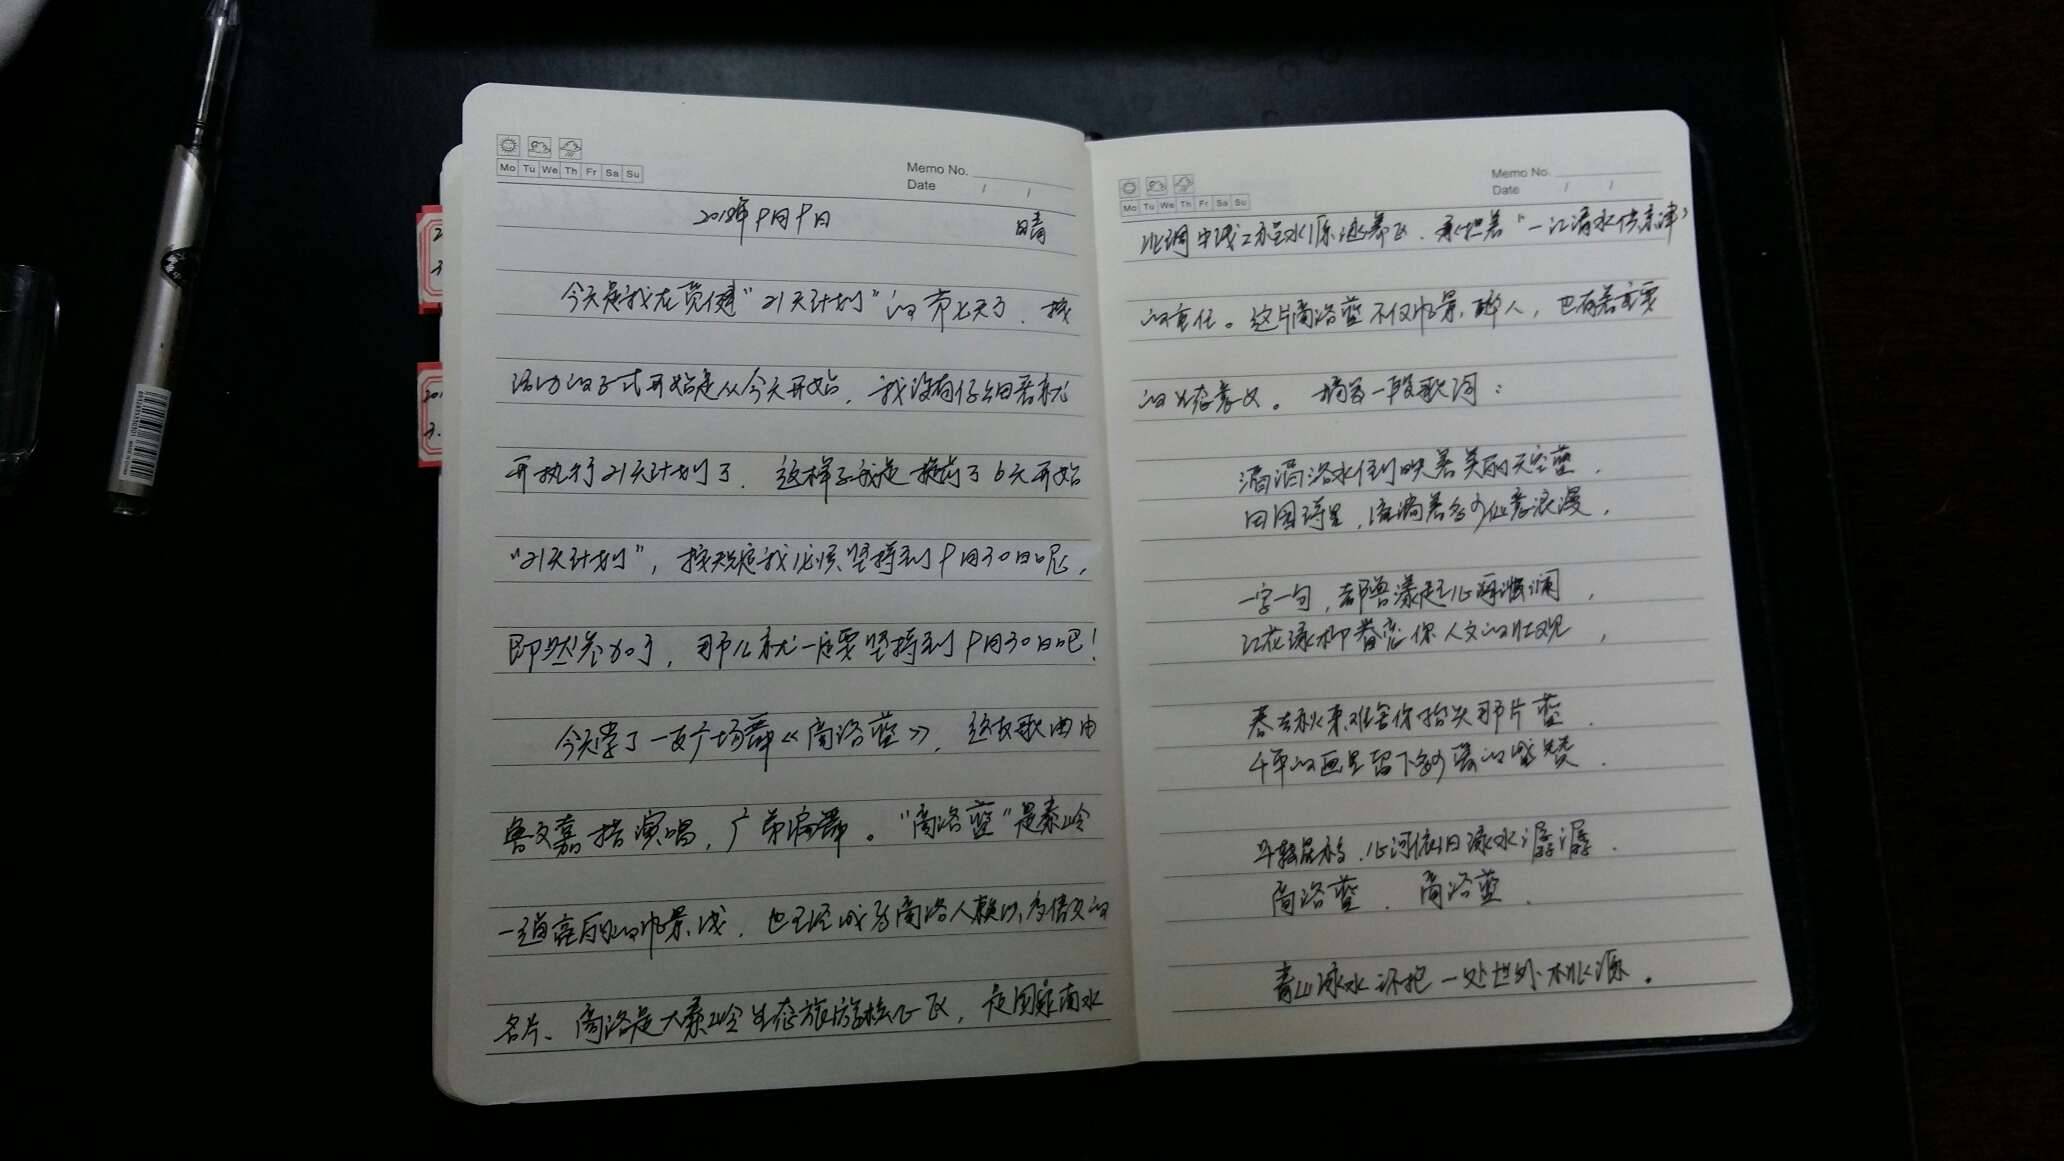 Mo Tu We Th Fr Sa Su
Memo No.
Date / /
2018年9月9日 晴
今天是我在觅健"21天计划"的第七天了，按
活动的正式开始是从今天开始，我没有仔细看就
开执行21天计划了，这样子我是提前了6天开始
"21天计划"，按规定我必须坚持到9月30日呢，
即然参加了，那么就一定要坚持到9月30日吧！
今天学了一支广场舞《商洛蓝》，这支歌曲由
鲁文嘉 演唱，广 编舞。"商洛蓝"是秦岭
一道亮丽的风景线，也已经成为商洛人赖以为傲的
名片、商洛是大秦岭生态旅游核心区，是国家南水
Mo Tu We Th Fr Sa Su
Memo No.
Date / /
北调中线工程水源涵养区，承担着"一江清水供京津"
的重任。这片商洛蓝不仅风景醉人，也有着重要
的生态意义。摘写一段歌词：
滔滔洛水倒映着美丽天空蓝，
田园诗里，流淌着多少仙意浪漫，
一字一句，都荡漾起心海波澜，
红花绿柳眷恋你人文的壮观，
春去秋来难舍你抬头那片蓝，
千年的画里留下多少 的感赞，
斗转星移，心河依旧绿水潺潺，
商洛蓝，商洛蓝，
青山绿水环抱一处世外桃源。